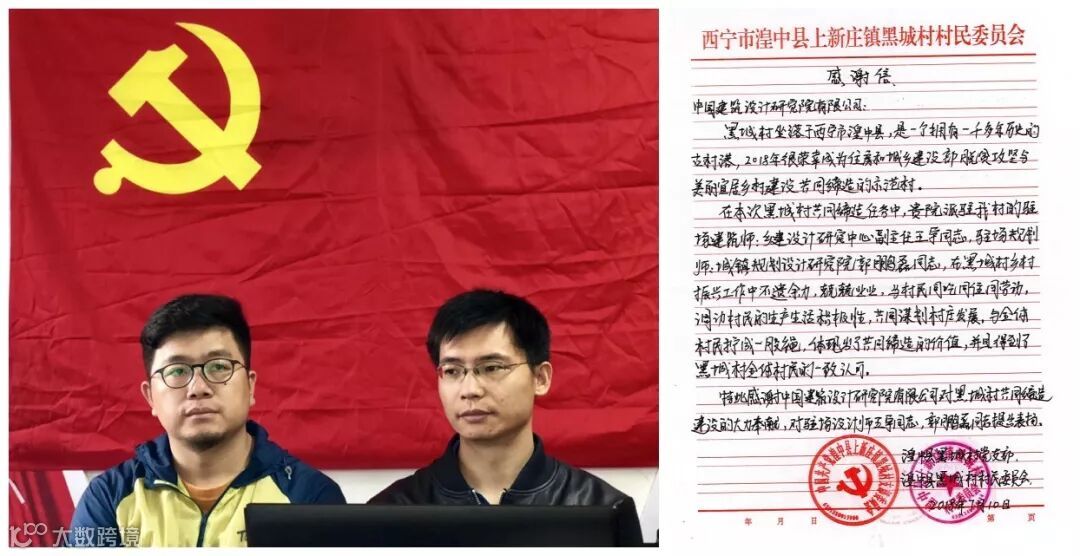 西宁市湟中县上新庄镇黑城村村民委员会
感谢信
中国建筑设计研究院有限公司:
黑城村坐落于西宁市湟中县,是一个拥有一千多年历史的
古村落,2018年很荣幸成为住房和城乡建设部脱贫攻坚与
美丽宜居乡村建设共同缔造的示范村。
在本次黑城村共同缔造任务中,贵院派驻我村的驻
场建筑师:乡建设计研究中心副主任王军同志,驻场规划
师:城镇规划设计研究院郭鹏磊同志,在黑城村乡村
振兴工作中不遗余力,兢兢业业,与村民同吃同住同劳动,
调动村民的生产生活积极性,共同谋划村庄发展,与全体
村民拧成一股绳,体现出了共同缔造的价值,并且得到了
黑城村全体村民的一致认可。
特此感谢中国建筑设计研究院有限公司对黑城村共同缔造
建设的大力奉献,对驻场设计师王军同志,郭鹏磊同志提出表扬。
湟中县黑城村党支部
湟中县黑城村村民委员会
2018年7月10日
年 月 日 第 页
大数跨境